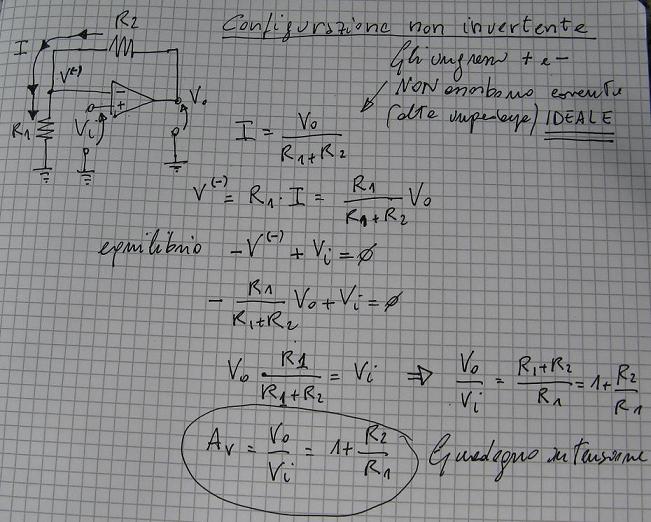 Configurazione non invertente
R2
I
V(-)
-
+
Vo
R1
Vi
Gli ingressi + e -
NON assorbono corrente
(alte impedenze) IDEALE
I = Vo / (R1+R2)
V(-) = R1 · I = R1 / (R1+R2) Vo
equilibrio -V(-) + Vi = ∅
- R1 / (R1+R2) Vo + Vi = ∅
Vo · R1 / (R1+R2) = Vi ⇒ Vo / Vi = (R1+R2) / R1 = 1 + R2 / R1
Av = Vo / Vi = 1 + R2 / R1 Guadagno in tensione